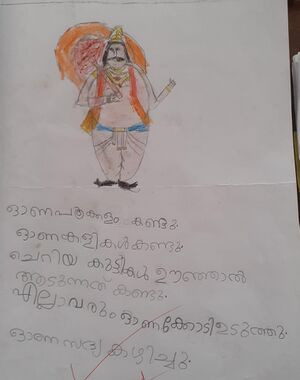 ഓണപൂക്കളം കണ്ടു.
ഓണകളികൾകണ്ടു.
ചെറിയ കുട്ടികൾ ഊഞ്ഞാൽ
ആടുന്നത് കണ്ടു.
എല്ലാവരും ഓണക്കോടിഉടുത്തു.
ഓണസദ്യ കഴിച്ചു.